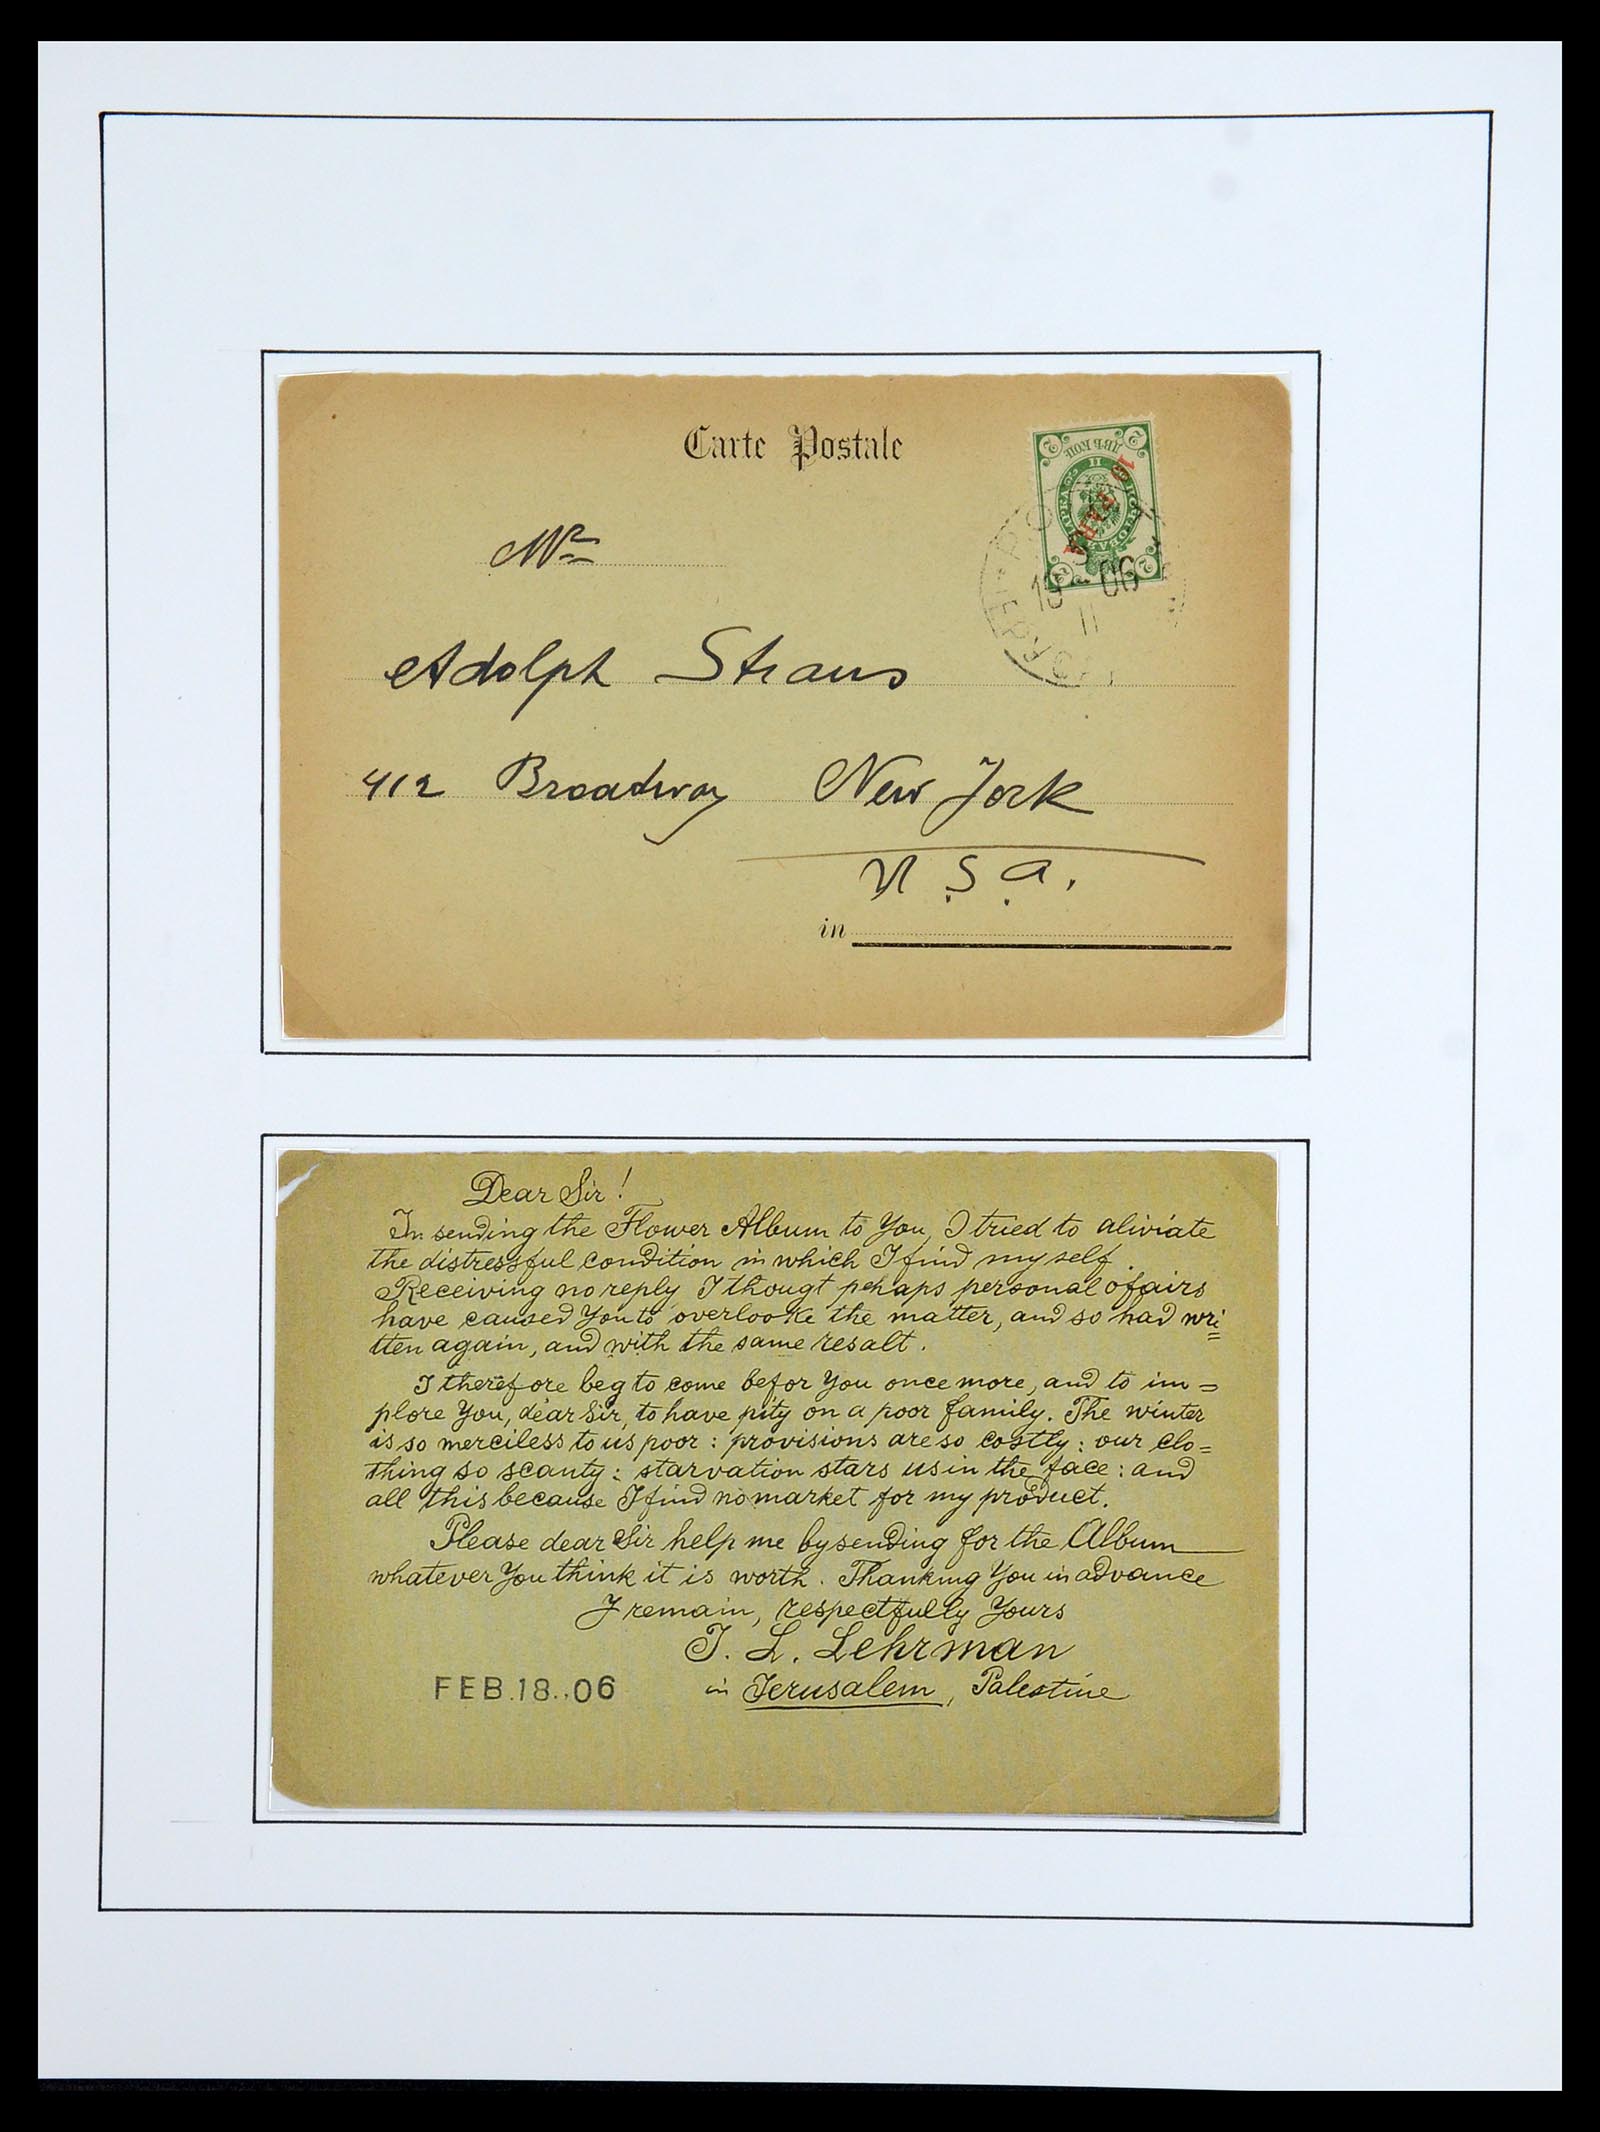 Carte Postale
Mr
Adolph Straus
412 Broadway New York
U.S.A.
in
2 2
ДВѢ КОП.
10 PARA
19 06
II
Dear Sir!
In sending the Flower Album to You, I tried to aliviate
the distressful condition in which I find my self.
Receiving no reply I thougt pehaps personal ofairs
have caused You to overlooke the matter, and so had wri=
tten again, and with the same resalt.
I therefore beg to come befor You once more, and to im=
plore You, dear Sir, to have pity on a poor family. The winter
is so merciless to us poor: provisions are so costly: our clo=
thing so scanty: starvation stars us in the face: and
all this because I find no market for my product.
Please dear Sir help me by sending for the Album
whatever You think it is worth. Thanking You in advance
I remain, respectfully Yours
J. L. Lehrman
FEB. 18..06 in Jerusalem, Palestine